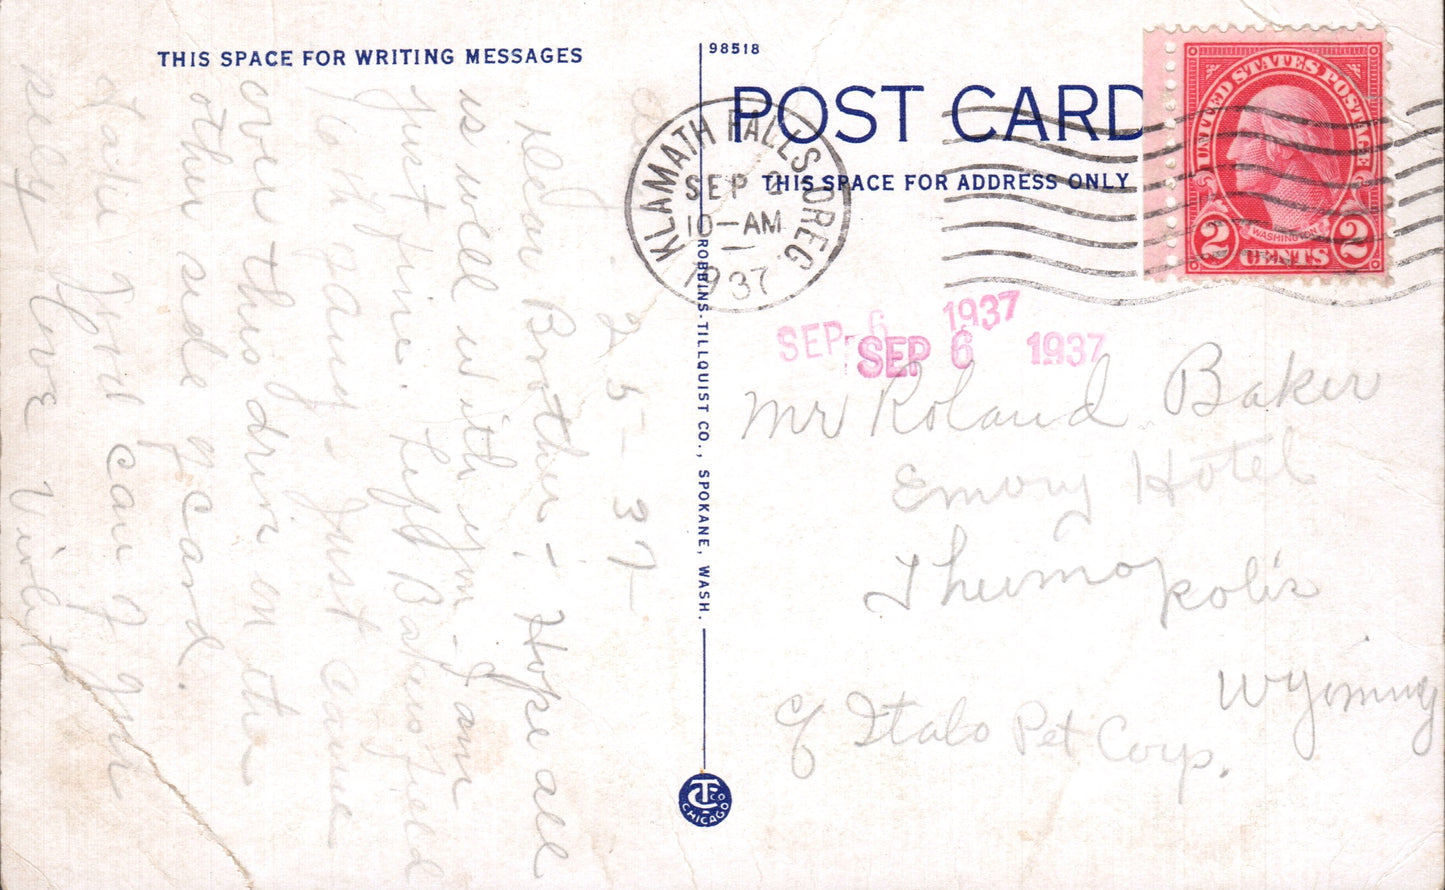 THIS SPACE FOR WRITING MESSAGES
98518
POST CARD
THIS SPACE FOR ADDRESS ONLY
KLAMATH FALLS OREG.
SEP
10-AM
1937
UNITED STATES POSTAGE
WASHINGTON
2 CENTS 2
SEP 6 1937
SEP 6 1937
Mr Roland Baker
Emory Hotel
Thermopolis
Wyoming
℅ Italo Pet Corp.
ROBBINS-TILLQUIST CO., SPOKANE, WASH.
CTCO
CHICAGO
5 - 37 -
Dear Brother; - Hope all
is well with you - I am
just fine. Left Bakersfield
- Just came
over this drive on the
other side of card.
you can
say - Love Violet